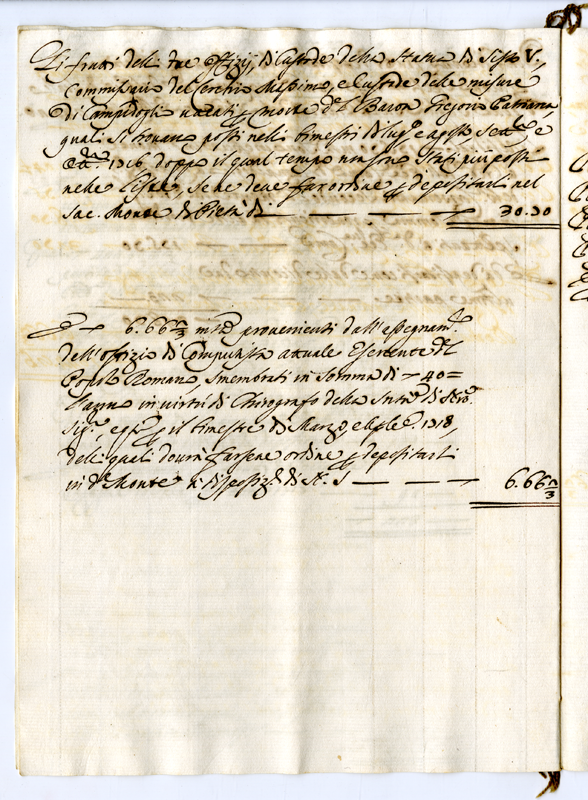 Li frutti delli due offizij, di Custode della Statua di Sisto V.
Commissario del Cerchio Massimo, e Custode delle misure
di Campidoglio vacati p morte del Baron Gregorio
quali si trovano posti nelli bimestri di lug.º e agosto, e
1716 doppo il qual tempo non sono stati più posti
nelle liste, se ne deve far ordine p depositarli nel
Sac. Monte di Pietà di — — — — 30.30
E 6.66 2/3 m.ta provenienti dall'assegnam.to
dell'offizio di Computista attuale Esercente del
Popolo Romano, smembrati in somma di 40=
l'anno in virtù di Chirografo della Sant.tà di Nro
Sig.re, e p il bimestre di Marzo, e Aple 1718,
delli quali dovrà farsene ordine p depositarli
in d.º Monte a disposiz.e di — — — 6.66 2/3